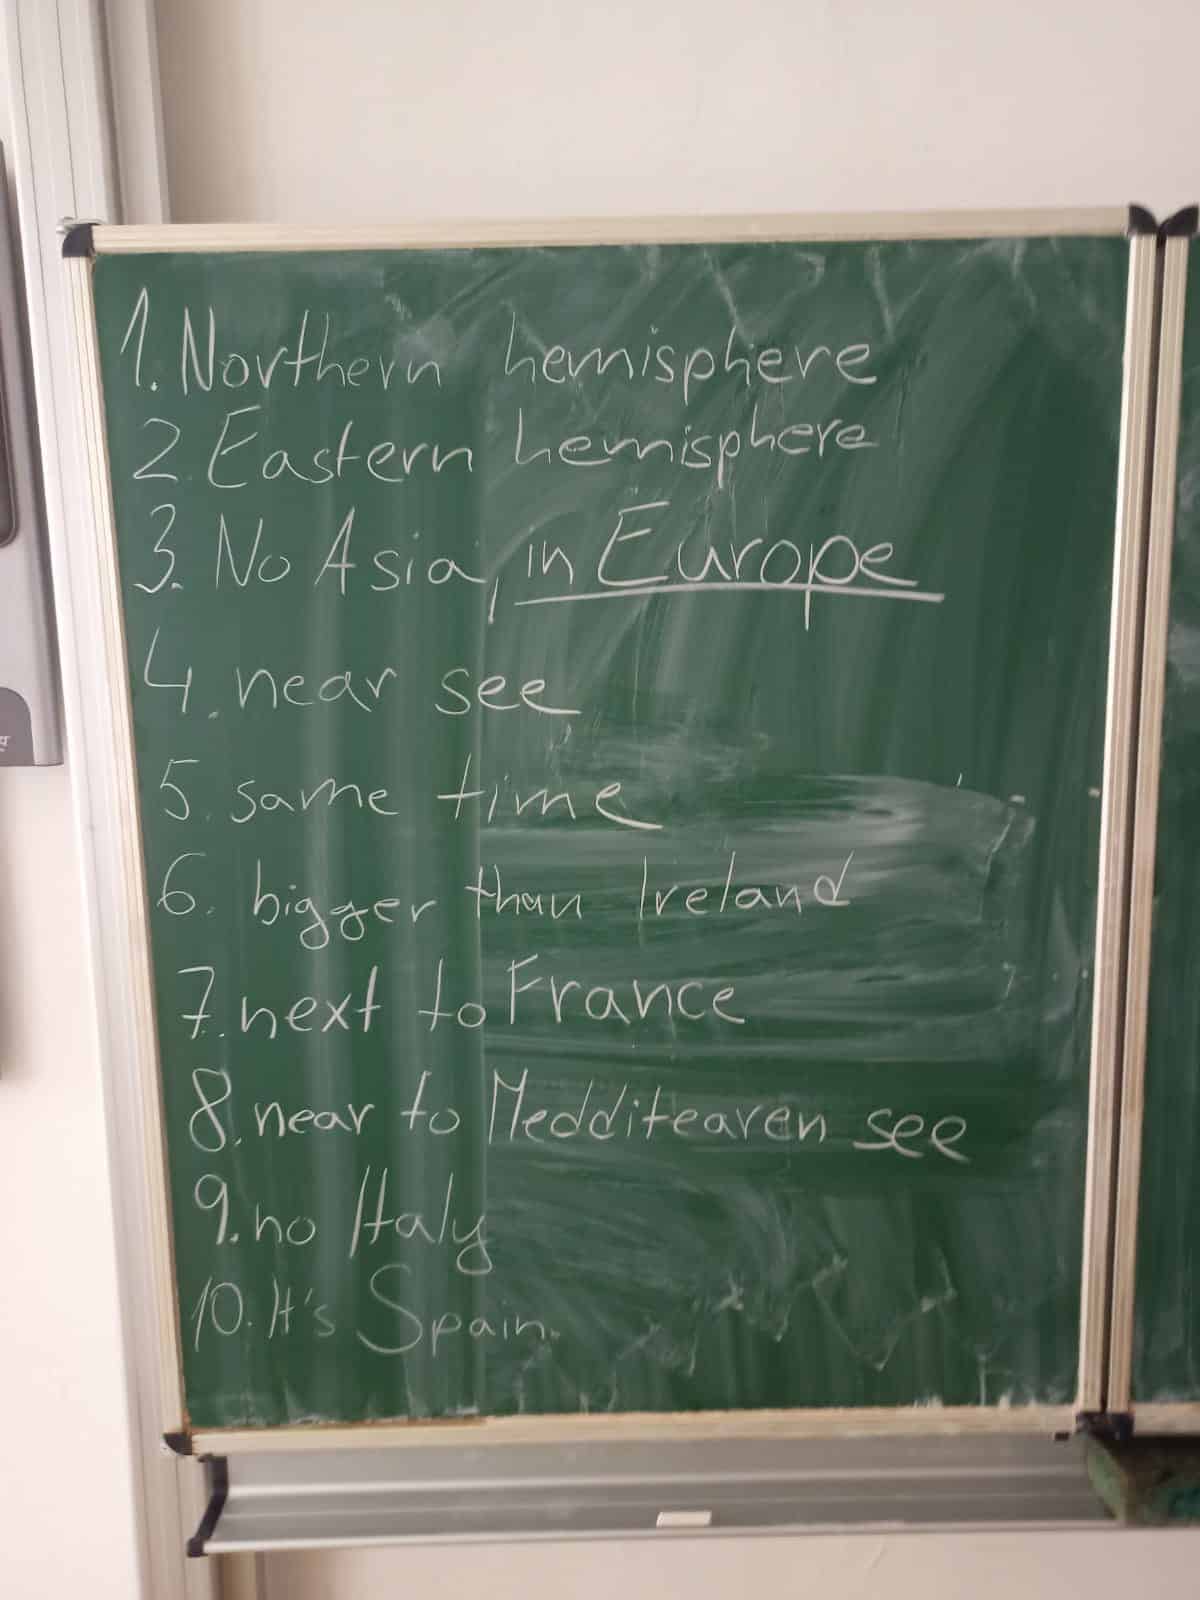 1. Northern hemisphere
2. Eastern hemisphere
3. No Asia, in Europe
4. near see
5. same time
6. bigger than Ireland
7. next to France
8. near to Medditearen see
9. no Italy
10. It's Spain.